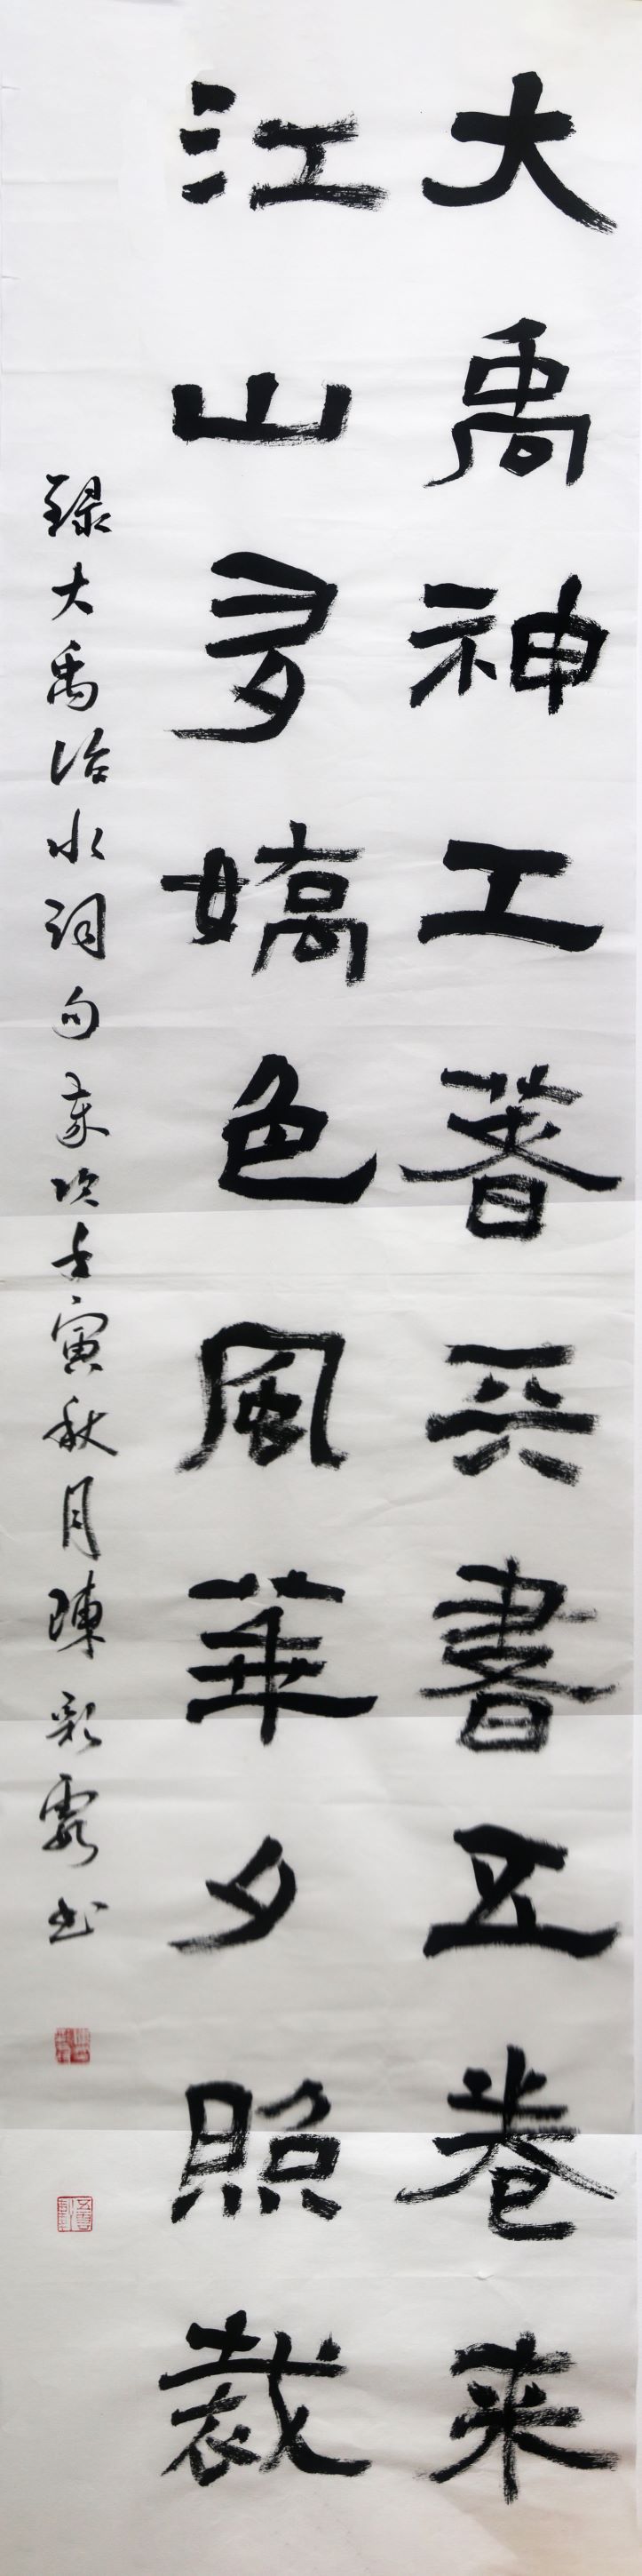 大禹神工著天書五卷来
江山多嬌色風華夕照裁
録大禹治水詞句歲次壬寅秋月陳彩霞书